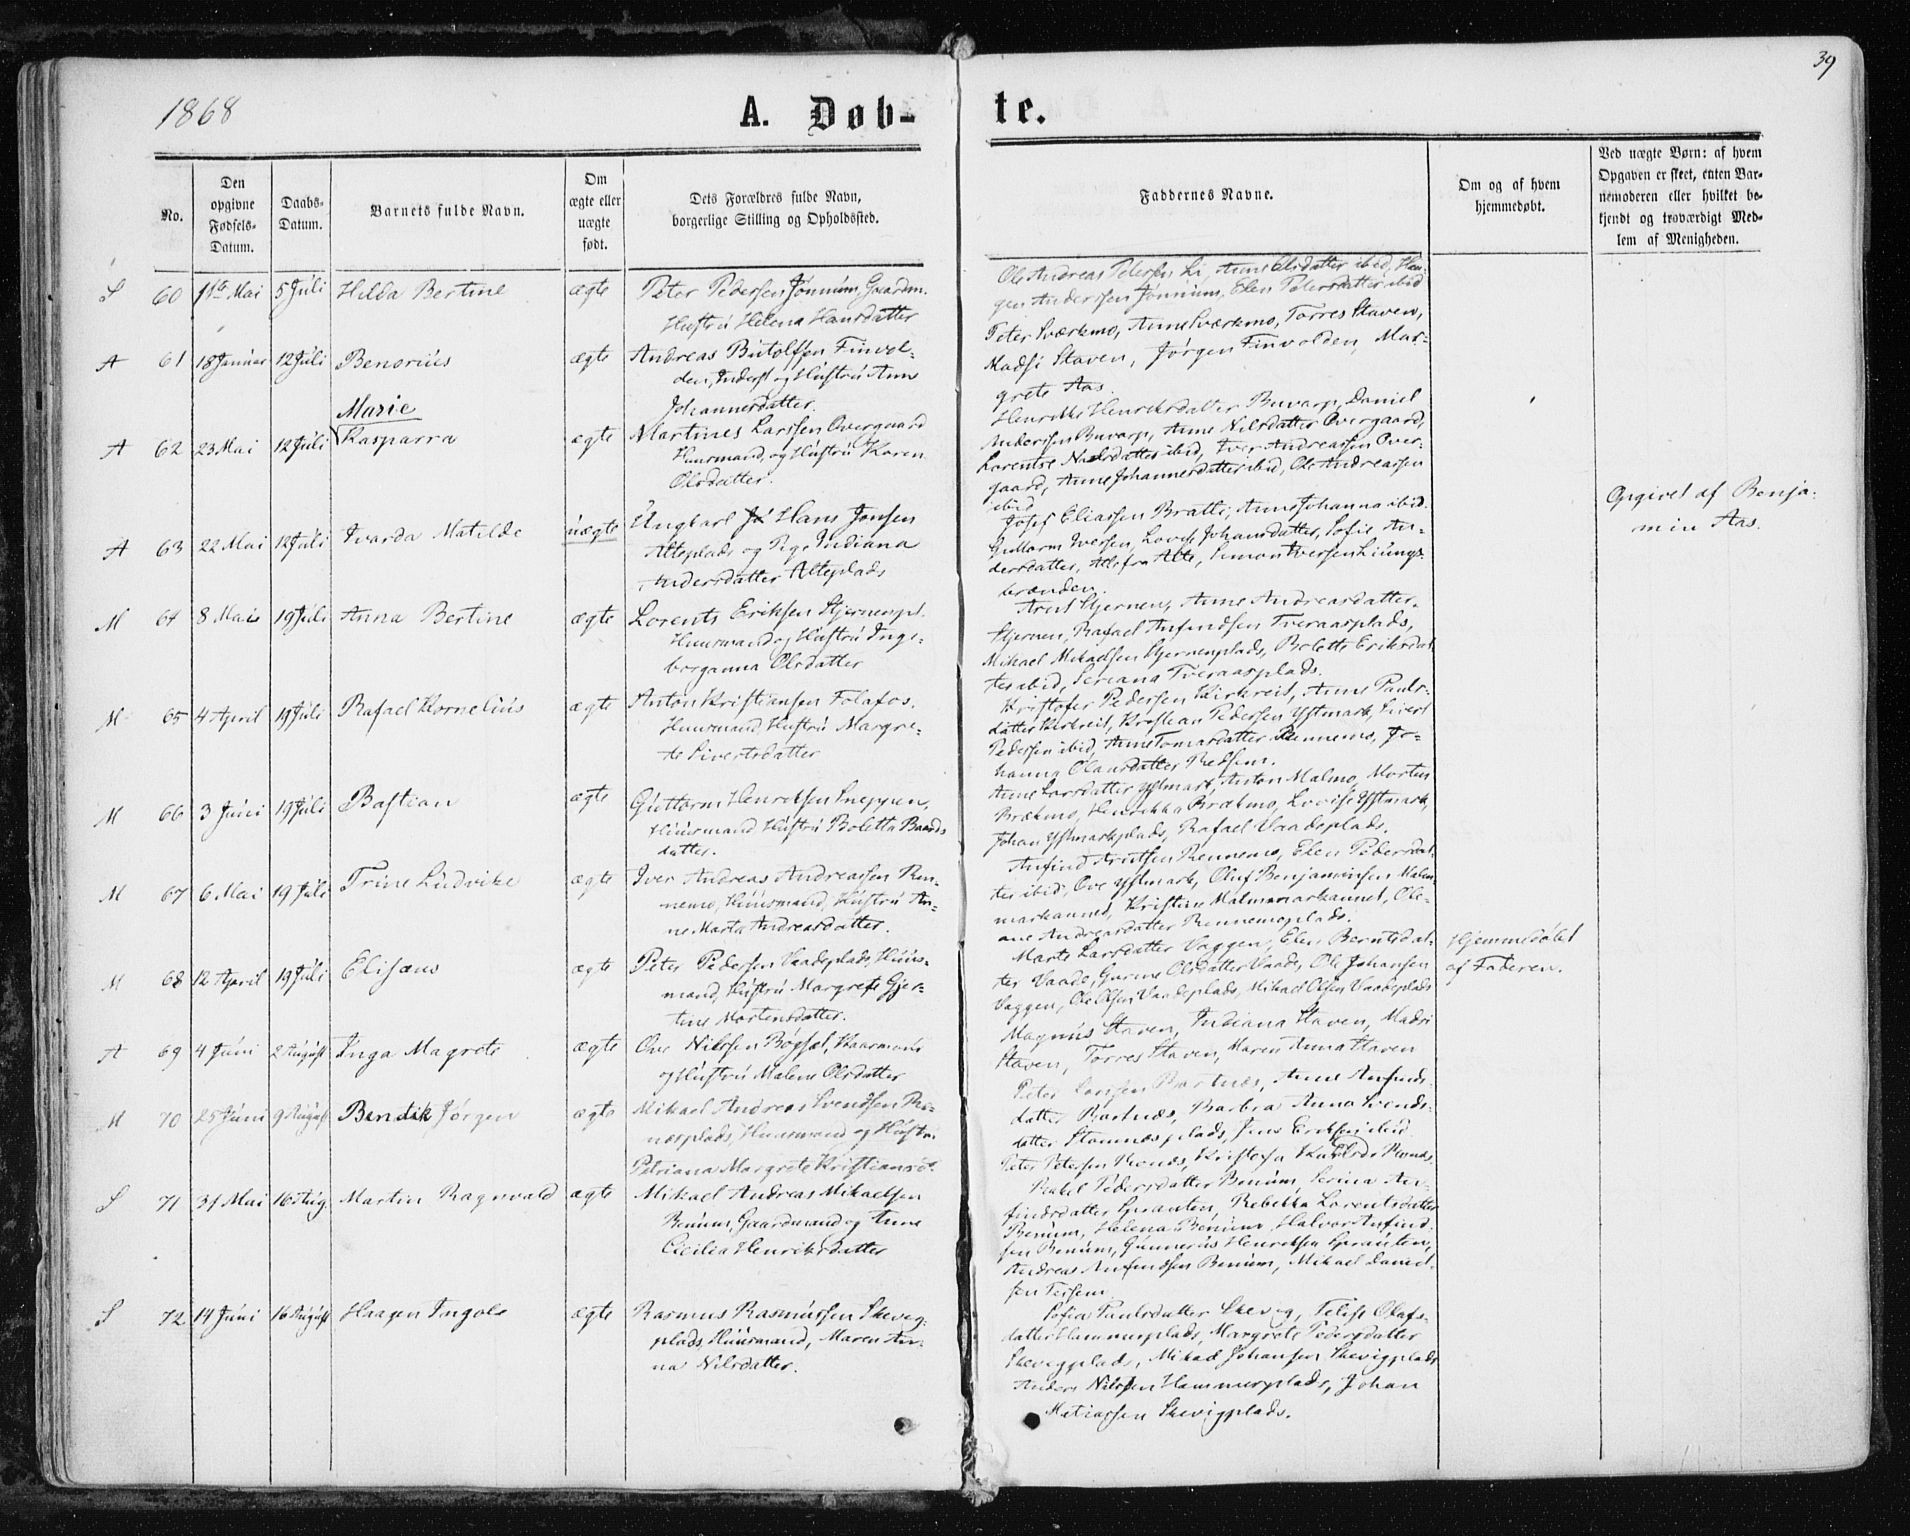 39
1868
A. Døb-
te.
No.
Den
opgivne
Fødsels-
Datum.
Daabs-
Datum.
Barnets fulde Navn.
Om
ægte eller
uægte
født.
Dets Forældres fulde Navn,
borgerlige Stilling og Opholdssted.
Faddernes Navne.
Om og af hvem
hjemmedøbt.
Ved uægte Børn: af hvem
Opgaven er skeet, enten Bar-
nemoderen eller hvilket be-
kjendt og troværdigt Med-
lem af Menigheden.
S 60 1ste Mai 5 Juli Hilda Bertine ægte Peter Pedersen Jønnum, Gaardm.
Hustru Helena Hansdatter
Ole Andreas Petersen Li, Anne Olsdatter ibid, Haa-
gen Anderssen Jønnum, Elen Petersdatter ibid
A 61 18 Januar 12 Juli Benorius ægte Andreas Butolfsen Finvol-
den, Inderst og Hustru Anne
Johannesdatter.
Peter Sværkmo, Anne Sværkmo, Torres Staven,
Madsi Staven, Jørgen Finvolden, Mar-
grete Aas.
Marie
A 62 23 Mai 12 Juli Kasparra ægte Martines Larssen Overgaard
Huusmand, og Hustru Karen
Olsdatter.
Henrikke Henriksdatter Buvarp, Daniel
Anderssen Buvarp, Anne Nilsdatter Overgaard,
Lorentse Nilsdatter ibid, Iver Andreassen Over-
gaard, Anne Johannesdatter ibid, Ole Andreassen
ibid
A 63 22 Mai 12 Juli Ivarda Matilde uægte Ungkarl Hans Jonsen
Alteplads og Pige Indiana
Andersdatter Alteplads
Josef Eliassen Bratli, Anne Johanna ibid.
Guttorm Iversen, Lovise Johansdatter, Sofie An-
dersdatter, Alle fra Alte, Simon Iversen Liungs-
brænden.
Opgivet af Benja-
min Aas.
M 64 8 Mai 19 Juli Anna Bertine ægte Lorents Eriksen Stjernenpl.
Huusmand og Hustru Inge-
borganna Olsdatter
Arnt Stjernen, Anne Andreasdatter
Stjernen, Rafael Anfindsen Tveraasplads,
Mikael Mikaelsen Stjernenplads, Bolette Eriksdat-
ter ibid, Seriana Tveraasplads.
M 65 4 April 19 Juli Rafael Kornelius ægte Anton Kristiansen Folafos.
Huusmand, Hustru Margre-
te Sivertsdatter
Kristofer Pedersen Kirkreit, Anne Pauls-
datter Kirkreit, Kristian Pedersen Ystmark, Sivert
Pedersen ibid, Anne Tomasdatter Rennemo, Jo-
hanna Olausdatter Redsem.
M 66 3 Juni 19 Juli Bastian ægte Guttorm Henriksen Sneppen,
Huusmand, Hustru Boletta Baards
datter.
Anne Larsdatter Ystmark, Anton Malmo, Morten
Brækmo, Henrikka Brækmo, Lovise Ystmark,
Johan Ystmarkplads, Rafael Vaadeplads.
M 67 6 Mai 19 Juli Trine Ludvike ægte Iver Andreas Andreassen Ren-
nemo, Huusmand, Hustru An-
ne Marta Andreasdatter.
Anfind Arntsen Rennemo, Elen Pedersdat-
ter ibid, Ove Ystmark, Oluf Benjaminsen Malm-
markaunet, Kristine Malmmarkaunet, Ole-
ane Andreasdatter Rennemoplads.
M 68 12 April 19 Juli Elisæus ægte Peter Pedersen Vaadeplads, Huus-
mand, Hustru Margrete Gjer-
tine Mortensdatter.
Marte Larsdatter Vaggen, Elen Berntsdat-
ter Vaade, Gurine Olsdatter Vaade, Ole Johansen
Vaggen, Ole Olsen Vaadeplads, Mikael Olsen Vaadeplads
Hjemmedøbt
af Faderen.
A 69 4 Juni 2 August Inga Magrete ægte Ove Nilssen Bøgsæt, Gaardmand
og Hustru Malene Olsdatter
Magnus Staven, Indiana Staven, Madsi
Staven, Torres Staven, Maren Anna Staven
M 70 25 Juni 9 August Bendik Jørgen ægte Mikael Andreas Svendsen Ro-
næsplads, Huusmand og Hustru
Petriana Margrete Kristiansd.
Peter Larssen Bartnæs, Anne Anfinds-
datter Bartnæs, Barbra Anna Svends-
datter Stamnæsplads, Jens Eriksen ibid.
S 71 31 Mai 16 Aug. Martin Ragnvald ægte Mikael Andreas Mikaelsen
Benum, Gaardmand og Anne
Cicilia Henriksdatter
Rakel Pedersdatter Benum, Serina An-
findsdatter Sprauten, Rebekka Lorentsdatter
Benum, Helena Benum, Halvor Anfind-
sen Benum, Gunnerus Henriksen Sprauten,
Andreas Anfindsen Benum, Mikael Daniel-
sen Tersem
S 72 14 Juni 16 August Haagen Ingols ægte Rasmus Rasmussen Skevig-
plads, Huusmand, Maren An-
na Nilsdatter.
Sofia Paulsdatter Skevig, Felise Olafs-
datter Hammerplads, Margrete Pedersdatter
Skevigplads, Mikael Johansen Skevigplads
Anders Nilssen Hammerplads, Johan
Matiassen Skevigplads.